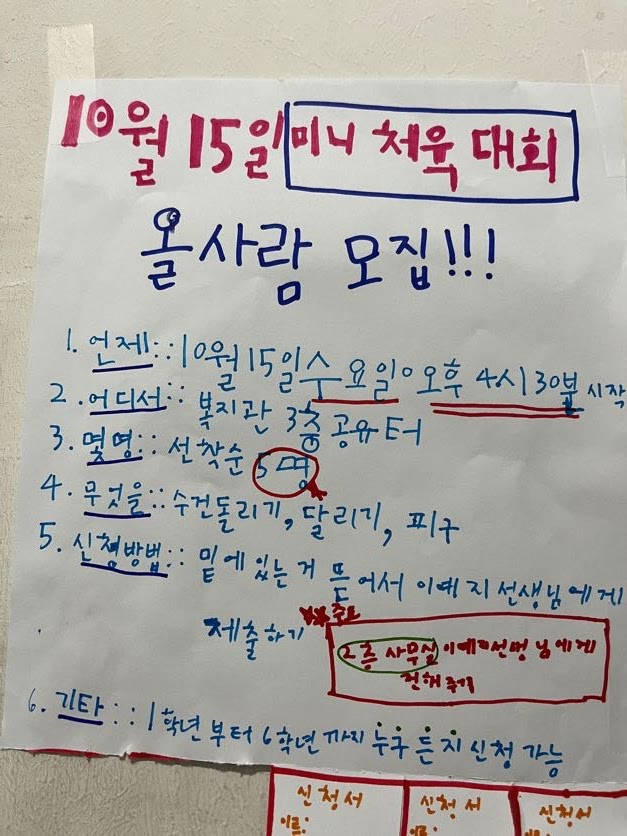 10월 15일 미니 체육 대회
올사람 모집!!!
1. 언제:: 10월 15일 수요일 오후 4시 30분 시작
2. 어디서:: 복지관 3층 공유터
3. 몇명:: 선착순 5명
4. 무엇을:: 수건돌리기, 달리기, 피구
5. 신청방법:: 밑에 있는 거 뜯어서 이예지선생님에게
제출하기
2층 사무실 이예지선생님에게
전해주기
6. 기타:: 1학년부터 6학년까지 누구든지 신청 가능
신청서 신청서 신청서
이름: 이름: